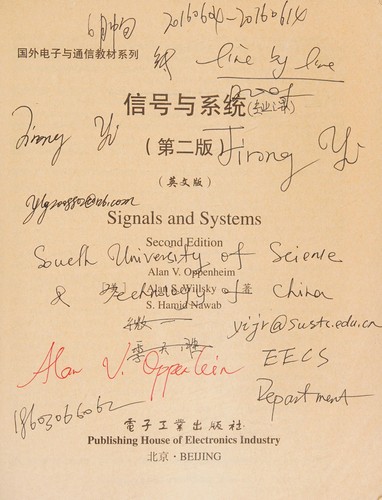 6月中旬 20160604-20160614
国外电子与通信教材系列
line by line
信号与系统
Jirong Yi
(第二版)
Jirong Yi
(英文版)
Signals and Systems
Second Edition
South University of Science
Alan V. Oppenheim
& Technology of China
Alan S. Willsky 著
S. Hamid Nawab
yijr@sustc.edu.cn
Alan V. Oppenheim
EECS
Department
18603066062
电子工业出版社
Publishing House of Electronics Industry
北京·BEIJING